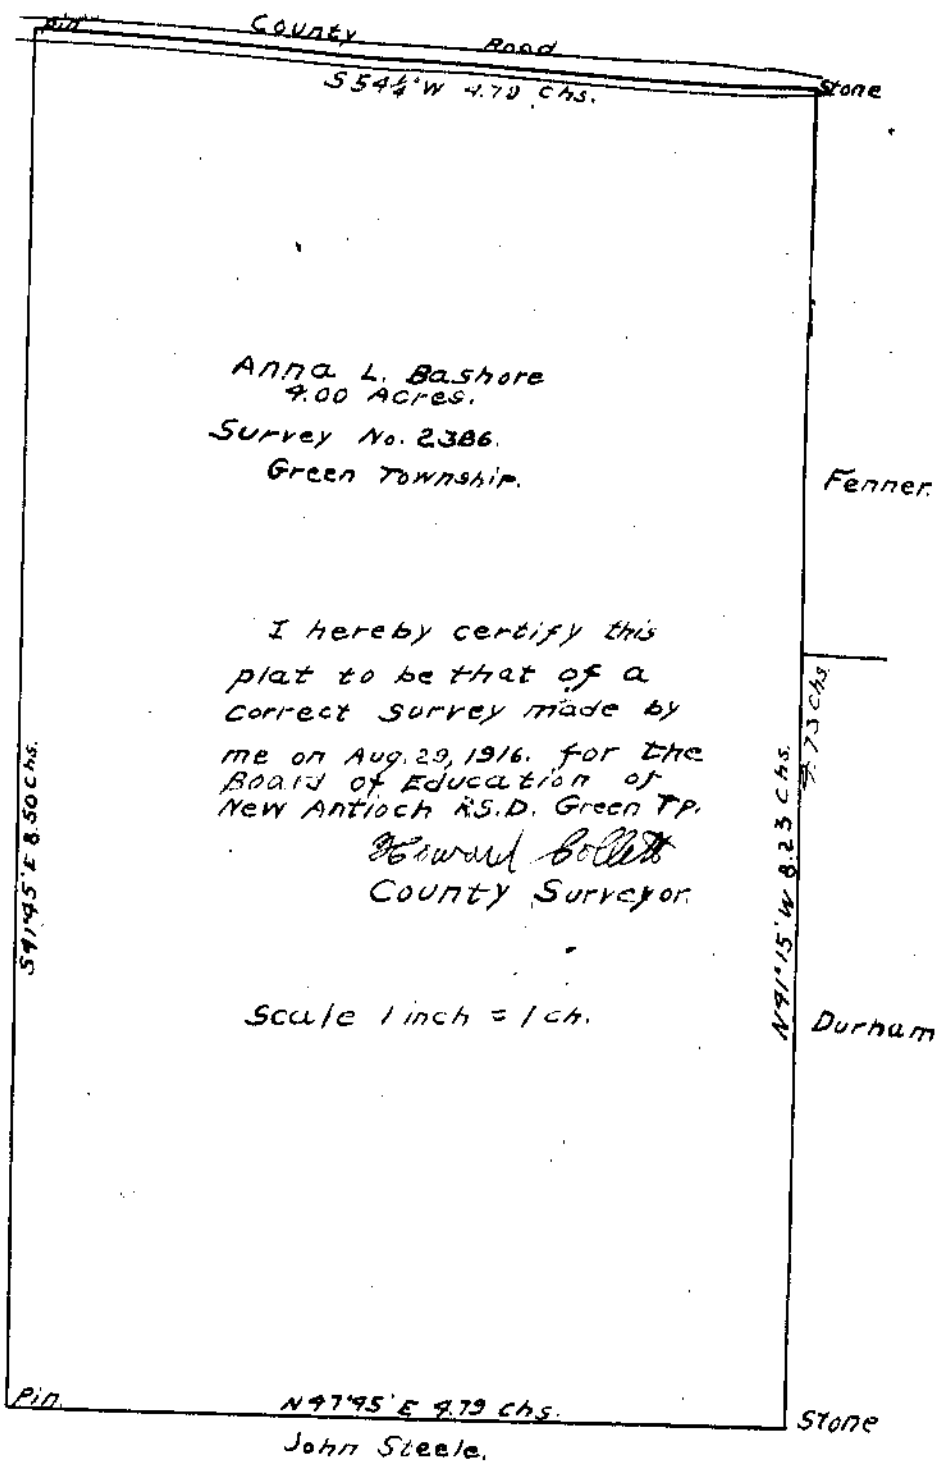 Pin
County Road
Stone
S 54¼° W 4.78 Chs.
Anna L. Bashore
4.00 Acres.
Survey No. 2386.
Green Township.
Fenner.
I hereby certify this
plat to be that of a
correct survey made by
me on Aug. 29, 1916. for the
Board of Education of
New Antioch R.S.D. Green Tp.
Howard Collett
County Surveyor.
4.73 Chs.
S 41°45' E 8.50 Chs.
N 41°15' W 8.23 Chs.
Scale 1 inch = 1 ch.
Durham
Pin.
N 47°45' E 4.79 Chs.
Stone
John Steele.